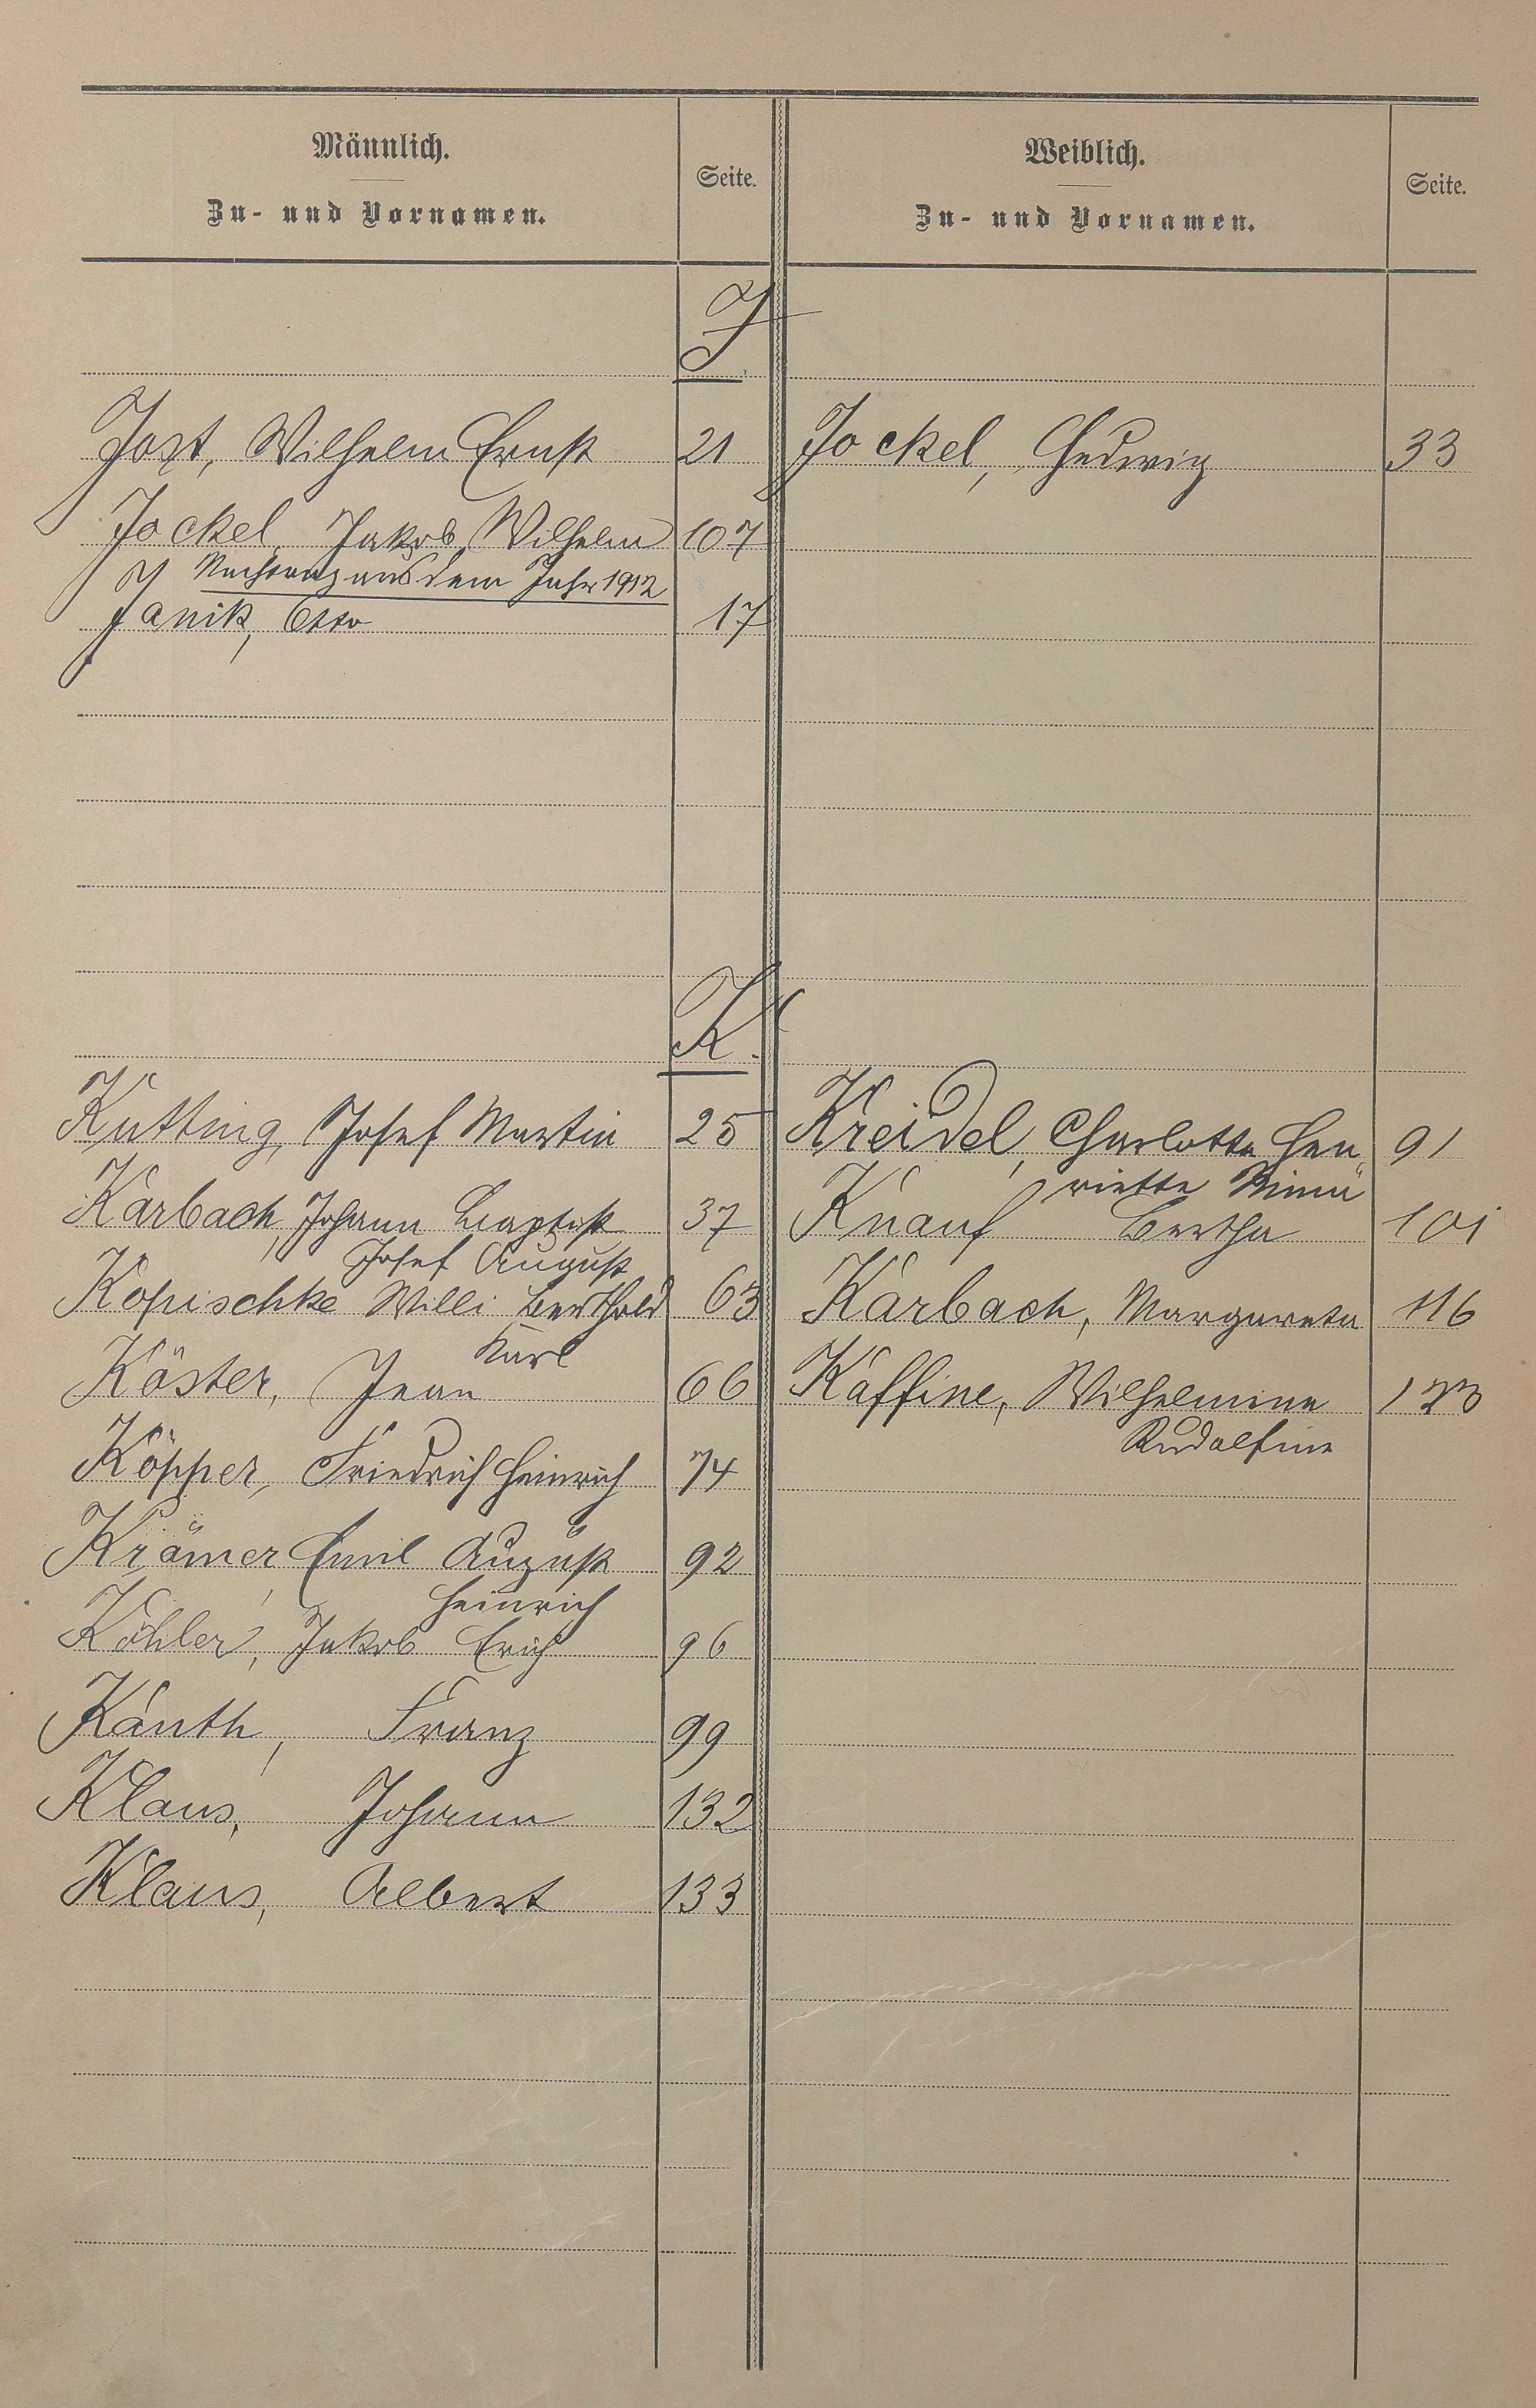 Männlich.
Zu- und Vornamen.
Seite.
Weiblich.
Zu- und Vornamen.
Seite.
J.
Jost, Wilhelm Ernst 21 Jockel, Hedwig 33
Jockel, Jakob Wilhelm 107
Nachtrag aus dem Jahr 1912
Janik, Otto 17
K.
Kutting, Josef Martin 25 Kreidel, Charlotte Hen„ 91
riette Minna
Karbach, Johann Baptist 37 Knauf Bertha 101
Josef August
Kopischke Willi Berthold 63 Karbach, Margareta 116
Karl
Köster, Jean 66 Kaffine, Wilhelmine 123
Rudolfine
Köpper, Friedrich Heinrich 74
Krämer, Emil August 92
Heinrich
Köhler, Jakob Erich 96
Kanth, Franz 99
Klaus, Johann 132
Klaus, Albert 133